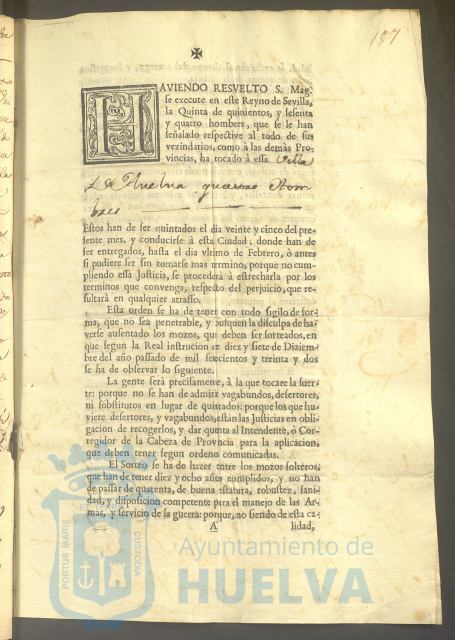 187
✠
HAVIENDO RESVELTO S. Mag.
se execute en este Reyno de Sevilla,
la Quinta de quinientos, y sesenta
y quatro hombres, que se le han
señalado respective al todo de sus
vezindarios, como à las demàs Pro-
vincias, ha tocado à essa Villa
de Huelva, hom
bres
Estos han de ser quintados el dia veinte y cinco del pre-
sente mes, y conducirse à esta Ciudad, donde han de
ser entregados, hasta el dia vltimo de Febrero, ò antes
si pudiere ser sin tomarse mas termino, porque no cum-
pliendo essa Justicia, se procederà à estrecharla por los
terminos que convenga, respecto del perjuicio, que re-
sultarà en qualquier atrasso.
Esta orden se ha de tener con todo sigilo de for-
ma, que no sea penetrable, y busquen la disculpa de ha-
verse ausentado los mozos, que deben ser sorteados, en
que segun la Real instrucion de diez y siete de Diziem-
bre del año passado de mil setecientos y treinta y dos
se ha de observar lo siguiente.
La gente serà precisamente, à la que tocare la suer-
te: porque no se han de admitir vagabundos, desertores,
ni sobstitutos en lugar de quintados: porque los que hu-
viere desertores, y vagabundos, estan las Justicias en obli-
gacion de recogerlos, y dar quenta al Intendente, ò Cor-
regidor de la Cabeza de Provncia para la aplicacion,
que deben tener segun ordens comunicadas.
El Sorteo se ha de hazer entre los mozos solteros,
que han de tener diez y ocho años cumplidos, y no han
de passar de quarenta, de buena estatura, robustez, sani-
dad, y disposicion competente para el manejo de las Ar-
mas, y servicio de la guerra: porque, no siendo de esta ca-
A lidad,
PORTUS MARIS
CUSTODIA
Ayuntamiento de
HUELVA